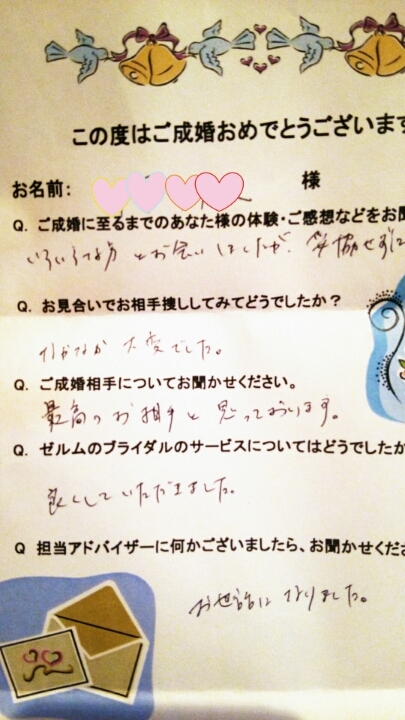 この度はご成婚おめでとうございます
お名前: 様
Q. ご成婚に至るまでのあなた様の体験・ご感想などをお聞
いろいろな方とお会いしましたが、妥協せずに
Q. お見合いでお相手捜ししてみてどうでしたか？
なかなか大変でした。
Q. ご成婚相手についてお聞かせください。
最高のお相手と思っております。
Q. ゼルムのブライダルのサービスについてはどうでしたか
良くしていただきました。
Q 担当アドバイザーに何かございましたら、お聞かせくださ
お世話になりました。